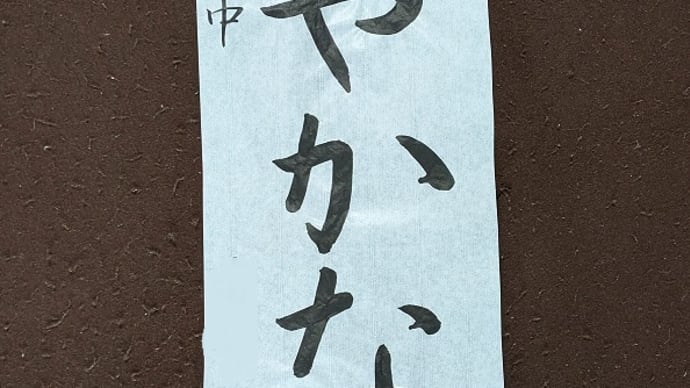 やかな
中